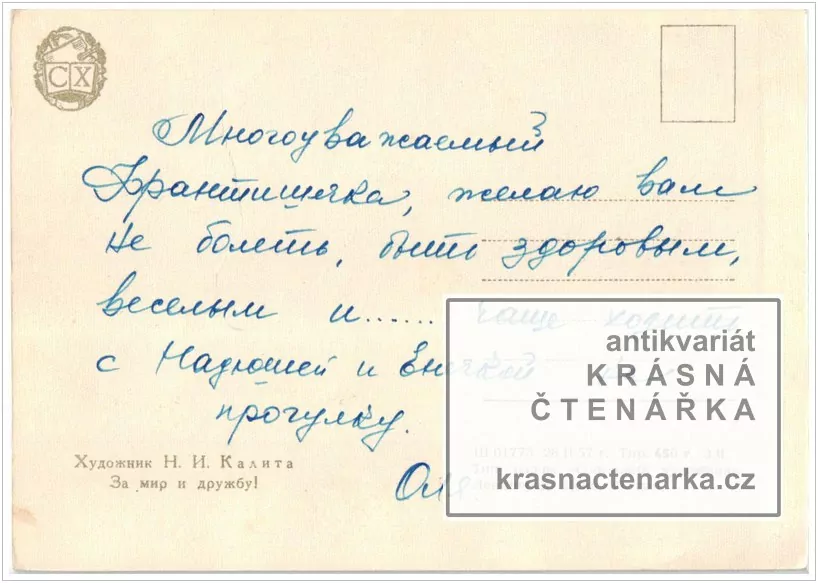 СХ
Многоуважаемый
Франтишека, желаю вам
не болеть, быть здоровым,
веселым и...... чаще ходить
с Надюшей и
прогулку.
Художник Н. И. Калита
За мир и дружбу!
antikvariát
KRÁSNÁ
ČTENÁŘKA
krasnactenarka.cz